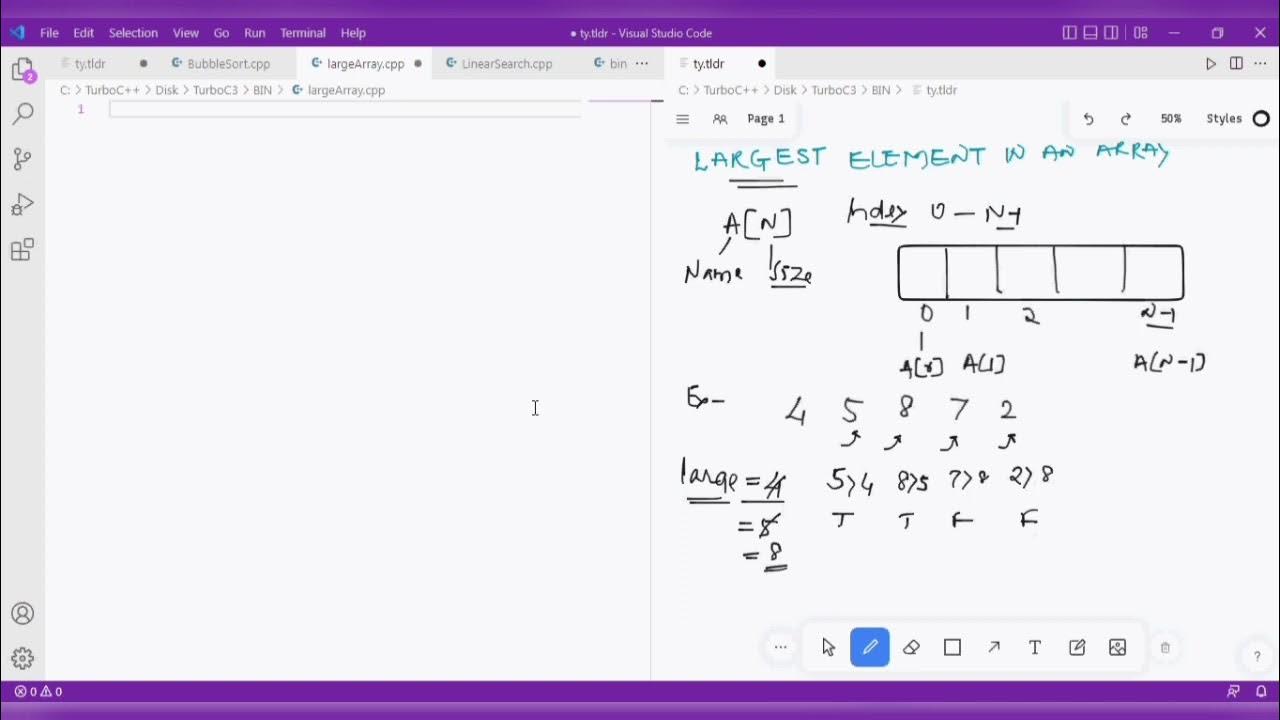 File Edit Selection View Go Run Terminal Help
● ty.tldr - Visual Studio Code
ty.tldr ● BubbleSort.cpp largeArray.cpp ● LinearSearch.cpp bin ···
ty.tldr ●
C: > TurboC++ > Disk > TurboC3 > BIN > largeArray.cpp
C: > TurboC++ > Disk > TurboC3 > BIN > ty.tldr
2
1
Page 1
50% Styles
LARGEST ELEMENT IN AN ARRAY
A[N] Index 0 - N-1
Name Size
0 1 2 N-1
A[0] A[1] A[N-1]
Ex- 4 5 8 7 2
large = 4 5>4 8>5 7>8 2>8
= 5 T T F F
= 8
··· T ?
0 0